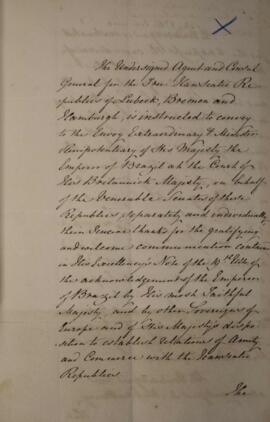 The Undersigned Agent and Consul
General for the Free Hanseatic Re-
publics of Lubeck, Bremen and
Hamburgh, is instructed to convey
to the Envoy Extraordinary & Minister
Plenipotentiary of His Majesty the
Emperor of Brazil at the Court of
His Britannick Majesty, on behalf
of the Venerable Senates of those
Republics separately and individually
their sincere thanks for the gratifying
and welcome communication contain
in His Excellency's Note of the
the acknowledgement of the Emperor
of Brazil by His most Faithful
Majesty, and by other Sovereigns of
Europe and of His Majesty's dispo-
sition to establish relations of Amity
and Commerce with the Hanseatic
Republics.
The